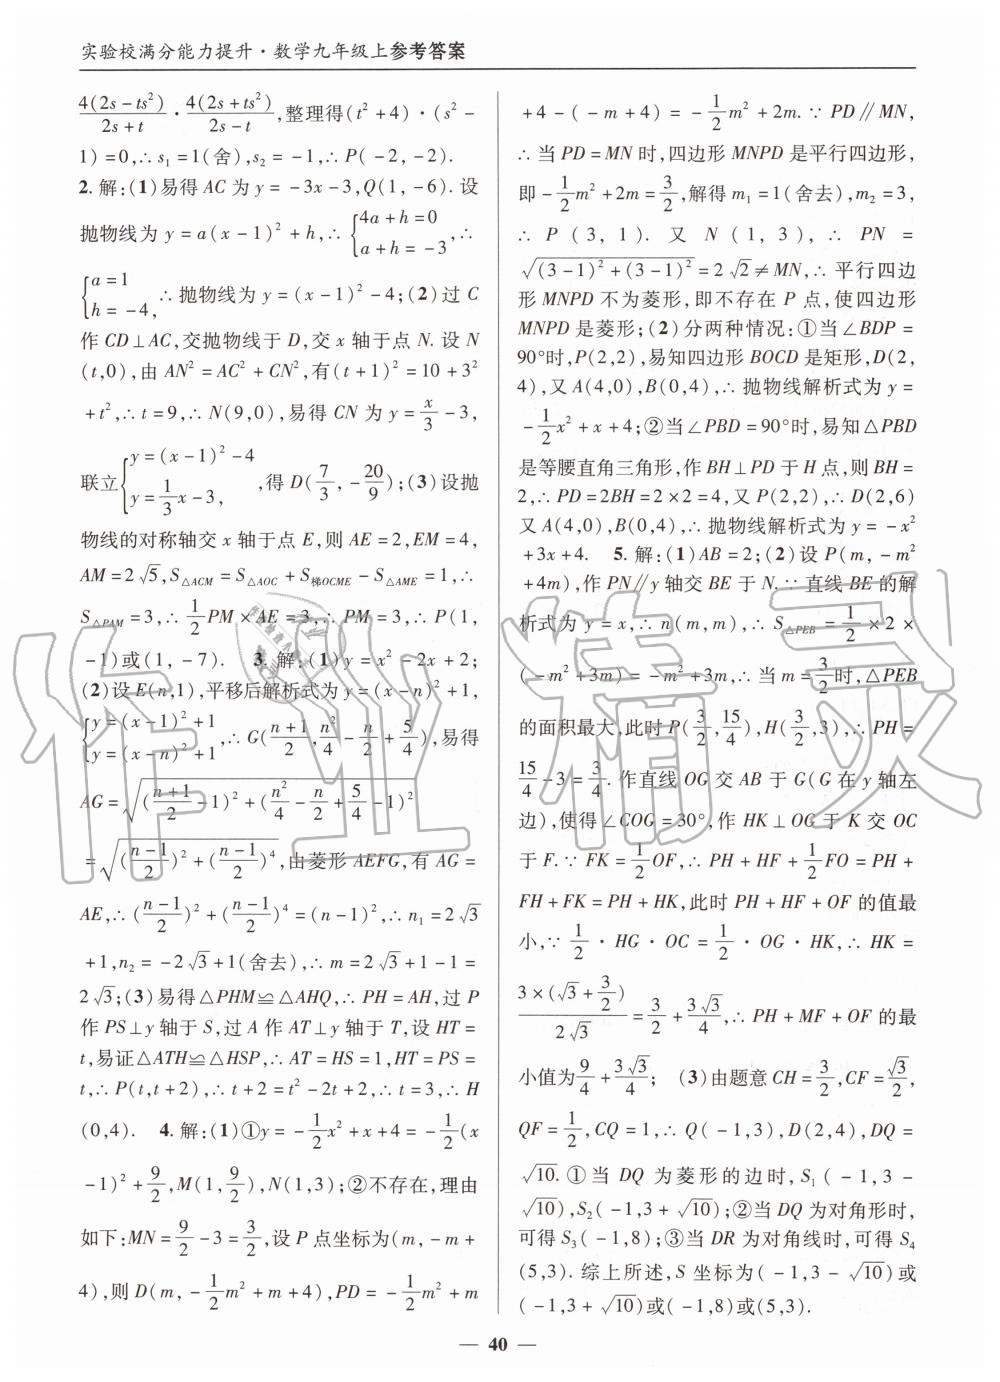 实验校满分能力提升·数学九年级上参考答案
4(2s-ts²)/(2s+t)·4(2s+ts²)/(2s-t),整理得(t²+4)·(s²-
1)=0,∴s₁=1(舍),s₂=-1,∴P(-2,-2).
2.解:(1)易得AC为y=-3x-3,Q(1,-6).设
抛物线为y=a(x-1)²+h,∴{4a+h=0 a+h=-3,∴
{a=1 h=-4,∴抛物线为y=(x-1)²-4;(2)过C
作CD⊥AC,交抛物线于D,交x轴于点N.设N
(t,0),由AN²=AC²+CN²,有(t+1)²=10+3²
+t²,∴t=9,∴N(9,0),易得CN为y=x/3-3,
联立{y=(x-1)²-4 y=1/3x-3,,得D(7/3,-20/9);(3)设抛
物线的对称轴交x轴于点E,则AE=2,EM=4,
AM=2√5,S△ACM=S△AOC+S梯OCME-S△AME=1,∴
S△PAM=3,∴1/2PM×AE=3,∴PM=3,∴P(1,
-1)或(1,-7). 3.解:(1)y=x²-2x+2;
(2)设E(n,1),平移后解析式为y=(x-n)²+1,
{y=(x-1)²+1 y=(x-n)²+1,∴G((n+1)/2,n²/4-n/2+5/4),易得
AG=√(((n+1)/2-1)²+(n²/4-n/2+5/4-1)²)
=√(((n-1)/2)²+((n-1)/2)⁴),由菱形AEFG,有AG=
AE,∴((n-1)/2)²+((n-1)/2)⁴=(n-1)²,∴n₁=2√3
+1,n₂=-2√3+1(舍去),∴m=2√3+1-1=
2√3;(3)易得△PHM≌△AHQ,∴PH=AH,过P
作PS⊥y轴于S,过A作AT⊥y轴于T,设HT=
t,易证△ATH≌△HSP,∴AT=HS=1,HT=PS=
t,∴P(t,t+2),∴t+2=t²-2t+2,∴t=3,∴H
(0,4). 4.解:(1)①y=-1/2x²+x+4=-1/2(x
-1)²+9/2,M(1,9/2),N(1,3);②不存在,理由
如下:MN=9/2-3=3/2,设P点坐标为(m,-m+
4),则D(m,-1/2m²+m+4),PD=-1/2m²+m
+4-(-m+4)=-1/2m²+2m.∵PD∥MN,
∴当PD=MN时,四边形MNPD是平行四边形,
即-1/2m²+2m=3/2,解得m₁=1(舍去),m₂=3,
∴P(3,1).又N(1,3),∴PN=
√((3-1)²+(3-1)²)=2√2≠MN,∴平行四边
形MNPD不为菱形,即不存在P点,使四边形
MNPD是菱形;(2)分两种情况:①当∠BDP=
90°时,P(2,2),易知四边形BOCD是矩形,D(2,
4),又A(4,0),B(0,4),∴抛物线解析式为y=
-1/2x²+x+4;②当∠PBD=90°时,易知△PBD
是等腰直角三角形,作BH⊥PD于H点,则BH=
2,∴PD=2BH=2×2=4,又P(2,2),∴D(2,6)
又A(4,0),B(0,4),∴抛物线解析式为y=-x²
+3x+4. 5.解:(1)AB=2;(2)设P(m,-m²
+4m),作PN∥y轴交BE于N.∵直线BE的解
析式为y=x,∴n(m,m),∴S△PEB=1/2×2×
(-m²+3m)=-m²+3m,∴当m=3/2时,△PEB
的面积最大,此时P(3/2,15/4),H(3/2,3),∴PH=
15/4-3=3/4.作直线OG交AB于G(G在y轴左
边),使得∠COG=30°,作HK⊥OG于K交OC
于F.∵FK=1/2OF,∴PH+HF+1/2FO=PH+
FH+FK=PH+HK,此时PH+HF+OF的值最
小,∵1/2·HG·OC=1/2·OG·HK,∴HK=
3×(√3+3/2)/(2√3)=3/2+3√3/4,∴PH+MF+OF的最
小值为9/4+3√3/4; (3)由题意CH=3/2,CF=√3/2,
QF=1/2,CQ=1,∴Q(-1,3),D(2,4),DQ=
√10.①当DQ为菱形的边时,S₁(-1,3-
√10),S₂(-1,3+√10);②当DQ为对角形时,
可得S₃(-1,8);③当DR为对角线时,可得S₄
(5,3).综上所述,S坐标为(-1,3-√10)或
(-1,3+√10)或(-1,8)或(5,3).
— 40 —
作业精灵